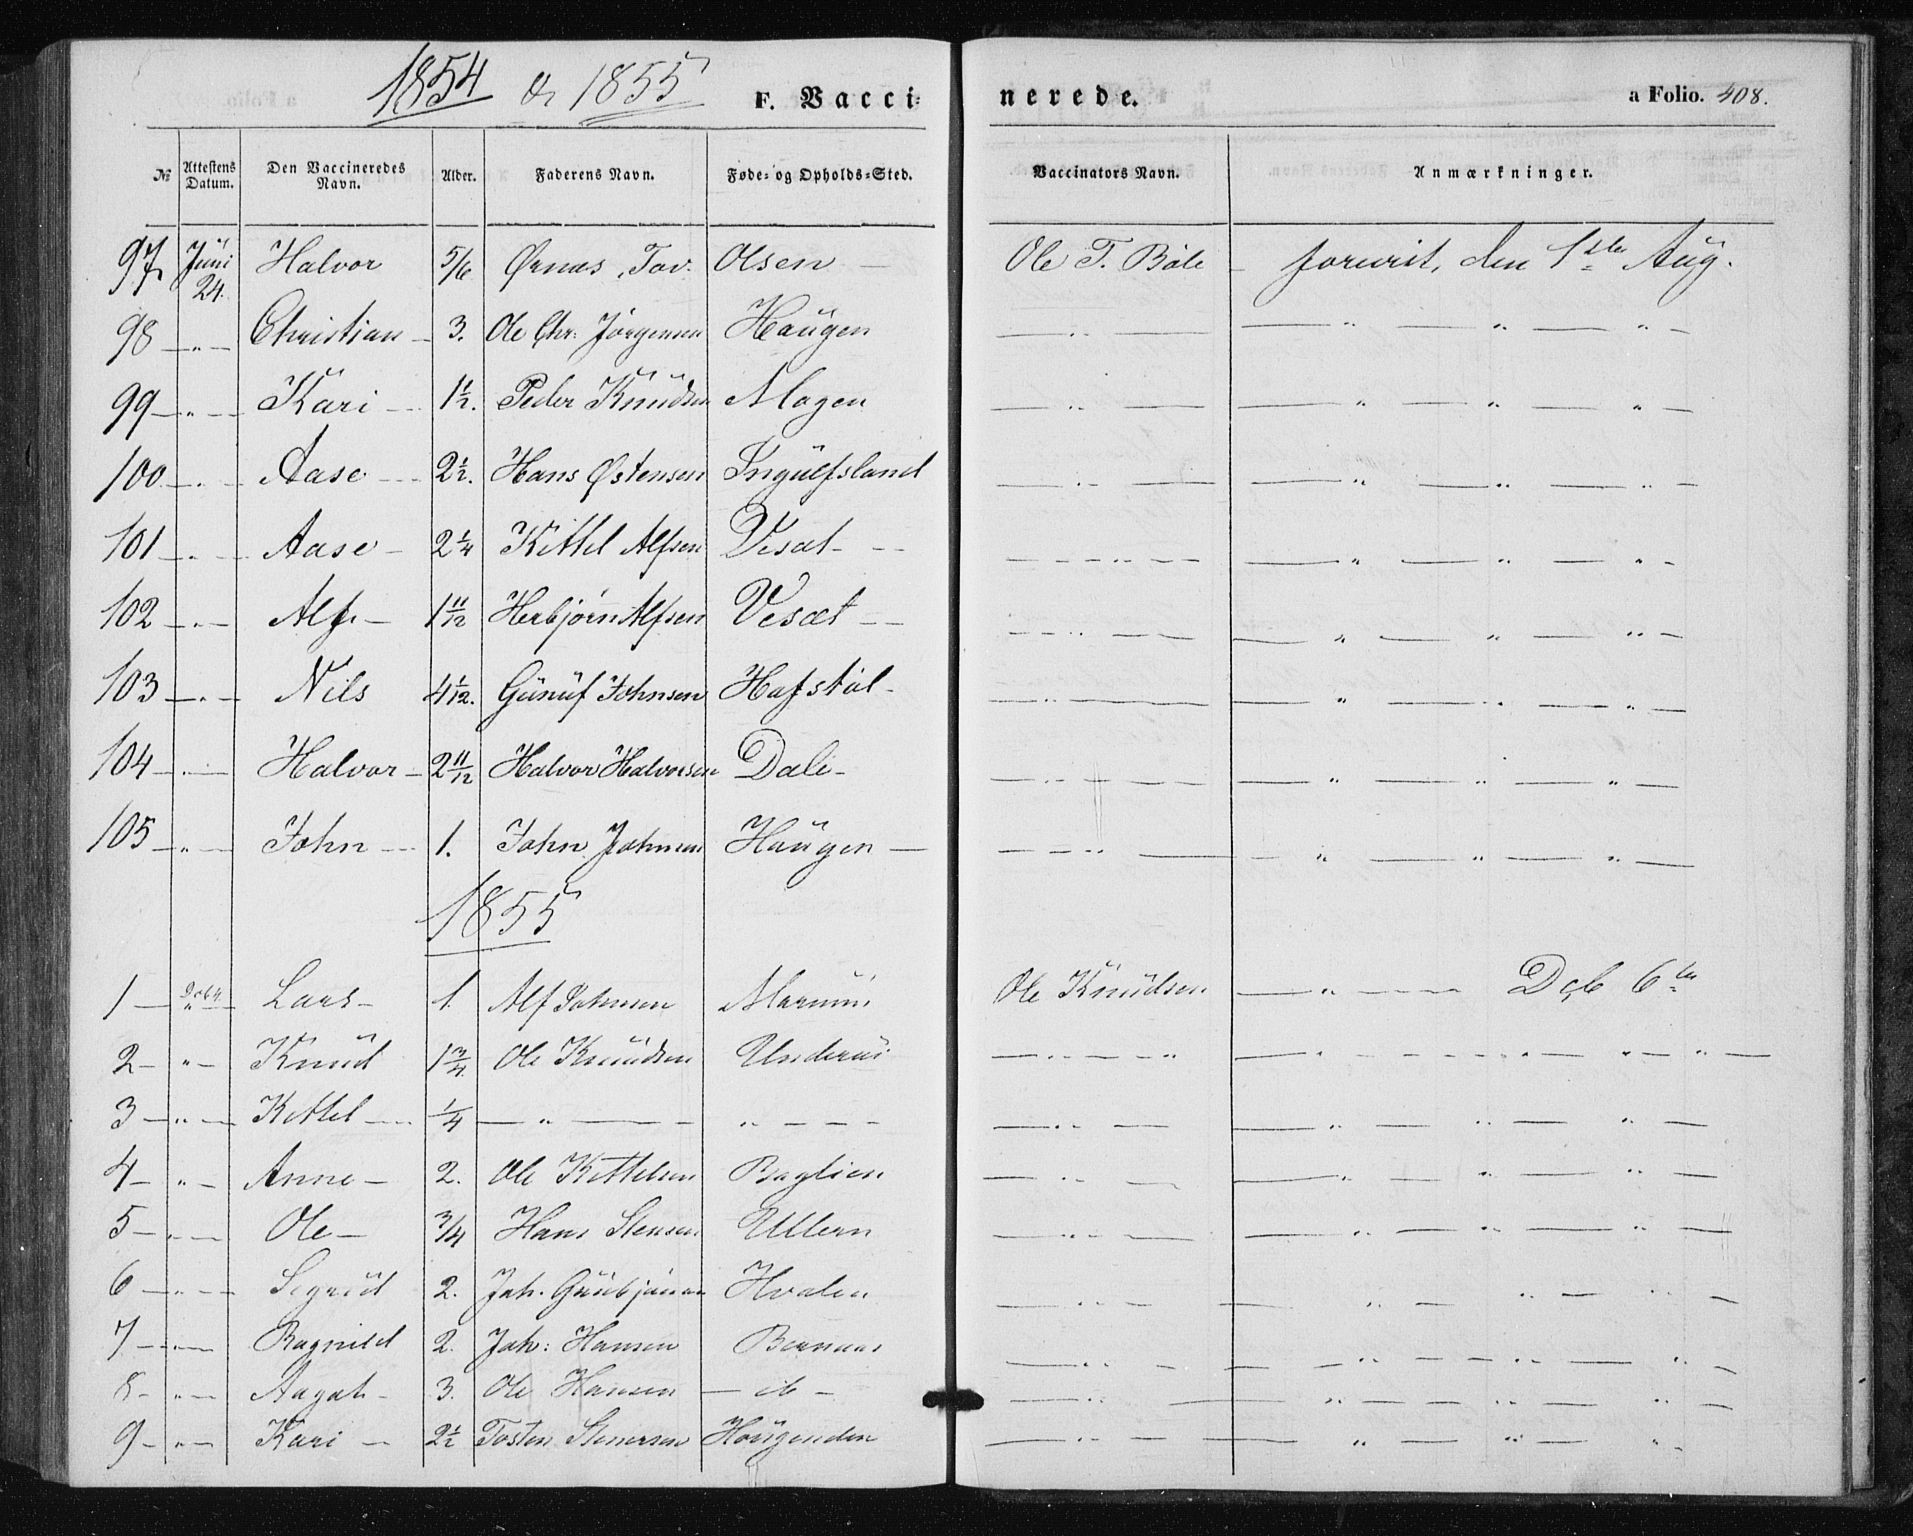 1854 & 1855 F. Vaccinerede. a Folio. 408.
№ Attestens Datum. Den Vaccineredes Navn. Alder. Faderens Navn. Føde- og Opholds-Sted. Vaccinators Navn. Anmærkninger.
97 Juni 24. Halvor 5/6 Ørnus, Tov. Olsen — Ole T. Bøle — forevist, den 1ste Aug.
98 — " — Christian — 3. Ole Chr: Jörgensen Haugen — " — — " — " — " —
99 — " — Kari — 1½. Peder Knudsen Mogen — " — — " — " — " —
100 — " — Aase — 2½. Hans Østensen Ingulfsland — " — — " — " — " —
101 — " — Aase — 2¼ Kittel Alfsen Vesæt — — " — — " — " — " —
102 — " — Alf — 1 11/12 Herbjörn Alfsen Vesæt — — " — — " — " — " —
103 — " — Nils 4 1/12. Gunuf Johnsen Hafstöl — — " — — " — " — " —
104 — " — Halvor — 2 11/12 Halvor Halvorsen Dale — — " — — " — " — " —
105 — " — John — 1. John Johnsen Haugen — — " — — " — " — " —
1855
1 — Dcb 4. Lars — 1. Alf Johnsen Marum Ole Knudsen — " — Dcb 6te
2 — " — Knud 1¾ Ole Knudsen — " — — " — " — " —
3 — " — Kittel — ¼ — " — " — — " — — " — " — " —
4 — " — Anne — 2. Ole Kittelsen Baglien — " — — " — " — " —
5 — " — Ole — ¾ Hans Stensen Ullern — " — — " — " — " —
6 — " — Sigrid 2. Joh. Gunbjörnsen Hvalen — " — — " — " — " —
7 — " — Ragnild 2. Joh: Hansen — " — — " — " — " —
8 — " — Aagot — 3. Ole Hansen — ib — — " — — " — " — " —
9 — " — Kari — 2½ Tosten Stenersen Haugenden — " — — " — " — " —